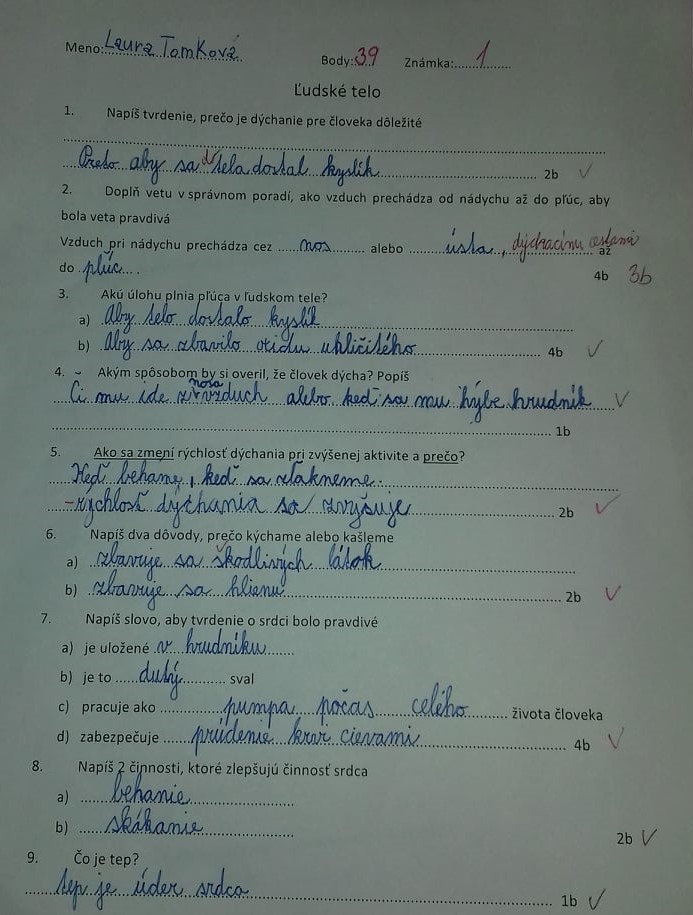 Meno: Laura Tomková Body: 39 Známka: 1
Ľudské telo
1. Napíš tvrdenie, prečo je dýchanie pre človeka dôležité
Preto aby sa d tela dostal kyslík 2b ✓
2. Doplň vetu v správnom poradí, ako vzduch prechádza od nádychu až do pľúc, aby
bola veta pravdivá
Vzduch pri nádychu prechádza cez nos alebo ústa, dýchacími cestami až
do pľúc. 4b 3b
3. Akú úlohu plnia pľúca v ľudskom tele?
a) Aby telo dostalo kyslík
b) Aby sa zbavilo oxidu uhličitého 4b ✓
4. Akým spôsobom by si overil, že človek dýcha? Popíš
Či mu ide z nosa vzduch alebo keď sa mu hýbe hrudník ✓
1b
5. Ako sa zmení rýchlosť dýchania pri zvýšenej aktivite a prečo?
Keď beháme, keď sa zľakneme.
-rýchlosť dýchania sa zvyšuje 2b ✓
6. Napíš dva dôvody, prečo kýchame alebo kašleme
a) zbavuje sa škodlivých látok
b) zbavuje sa hlienu 2b ✓
7. Napíš slovo, aby tvrdenie o srdci bolo pravdivé
a) je uložené v hrudníku
b) je to dutý sval
c) pracuje ako pumpa počas celého života človeka
d) zabezpečuje prúdenie krvi cievami 4b ✓
8. Napíš 2 činnosti, ktoré zlepšujú činnosť srdca
a) behanie
b) skákanie
2b ✓
9. Čo je tep?
tep je úder srdca 1b ✓